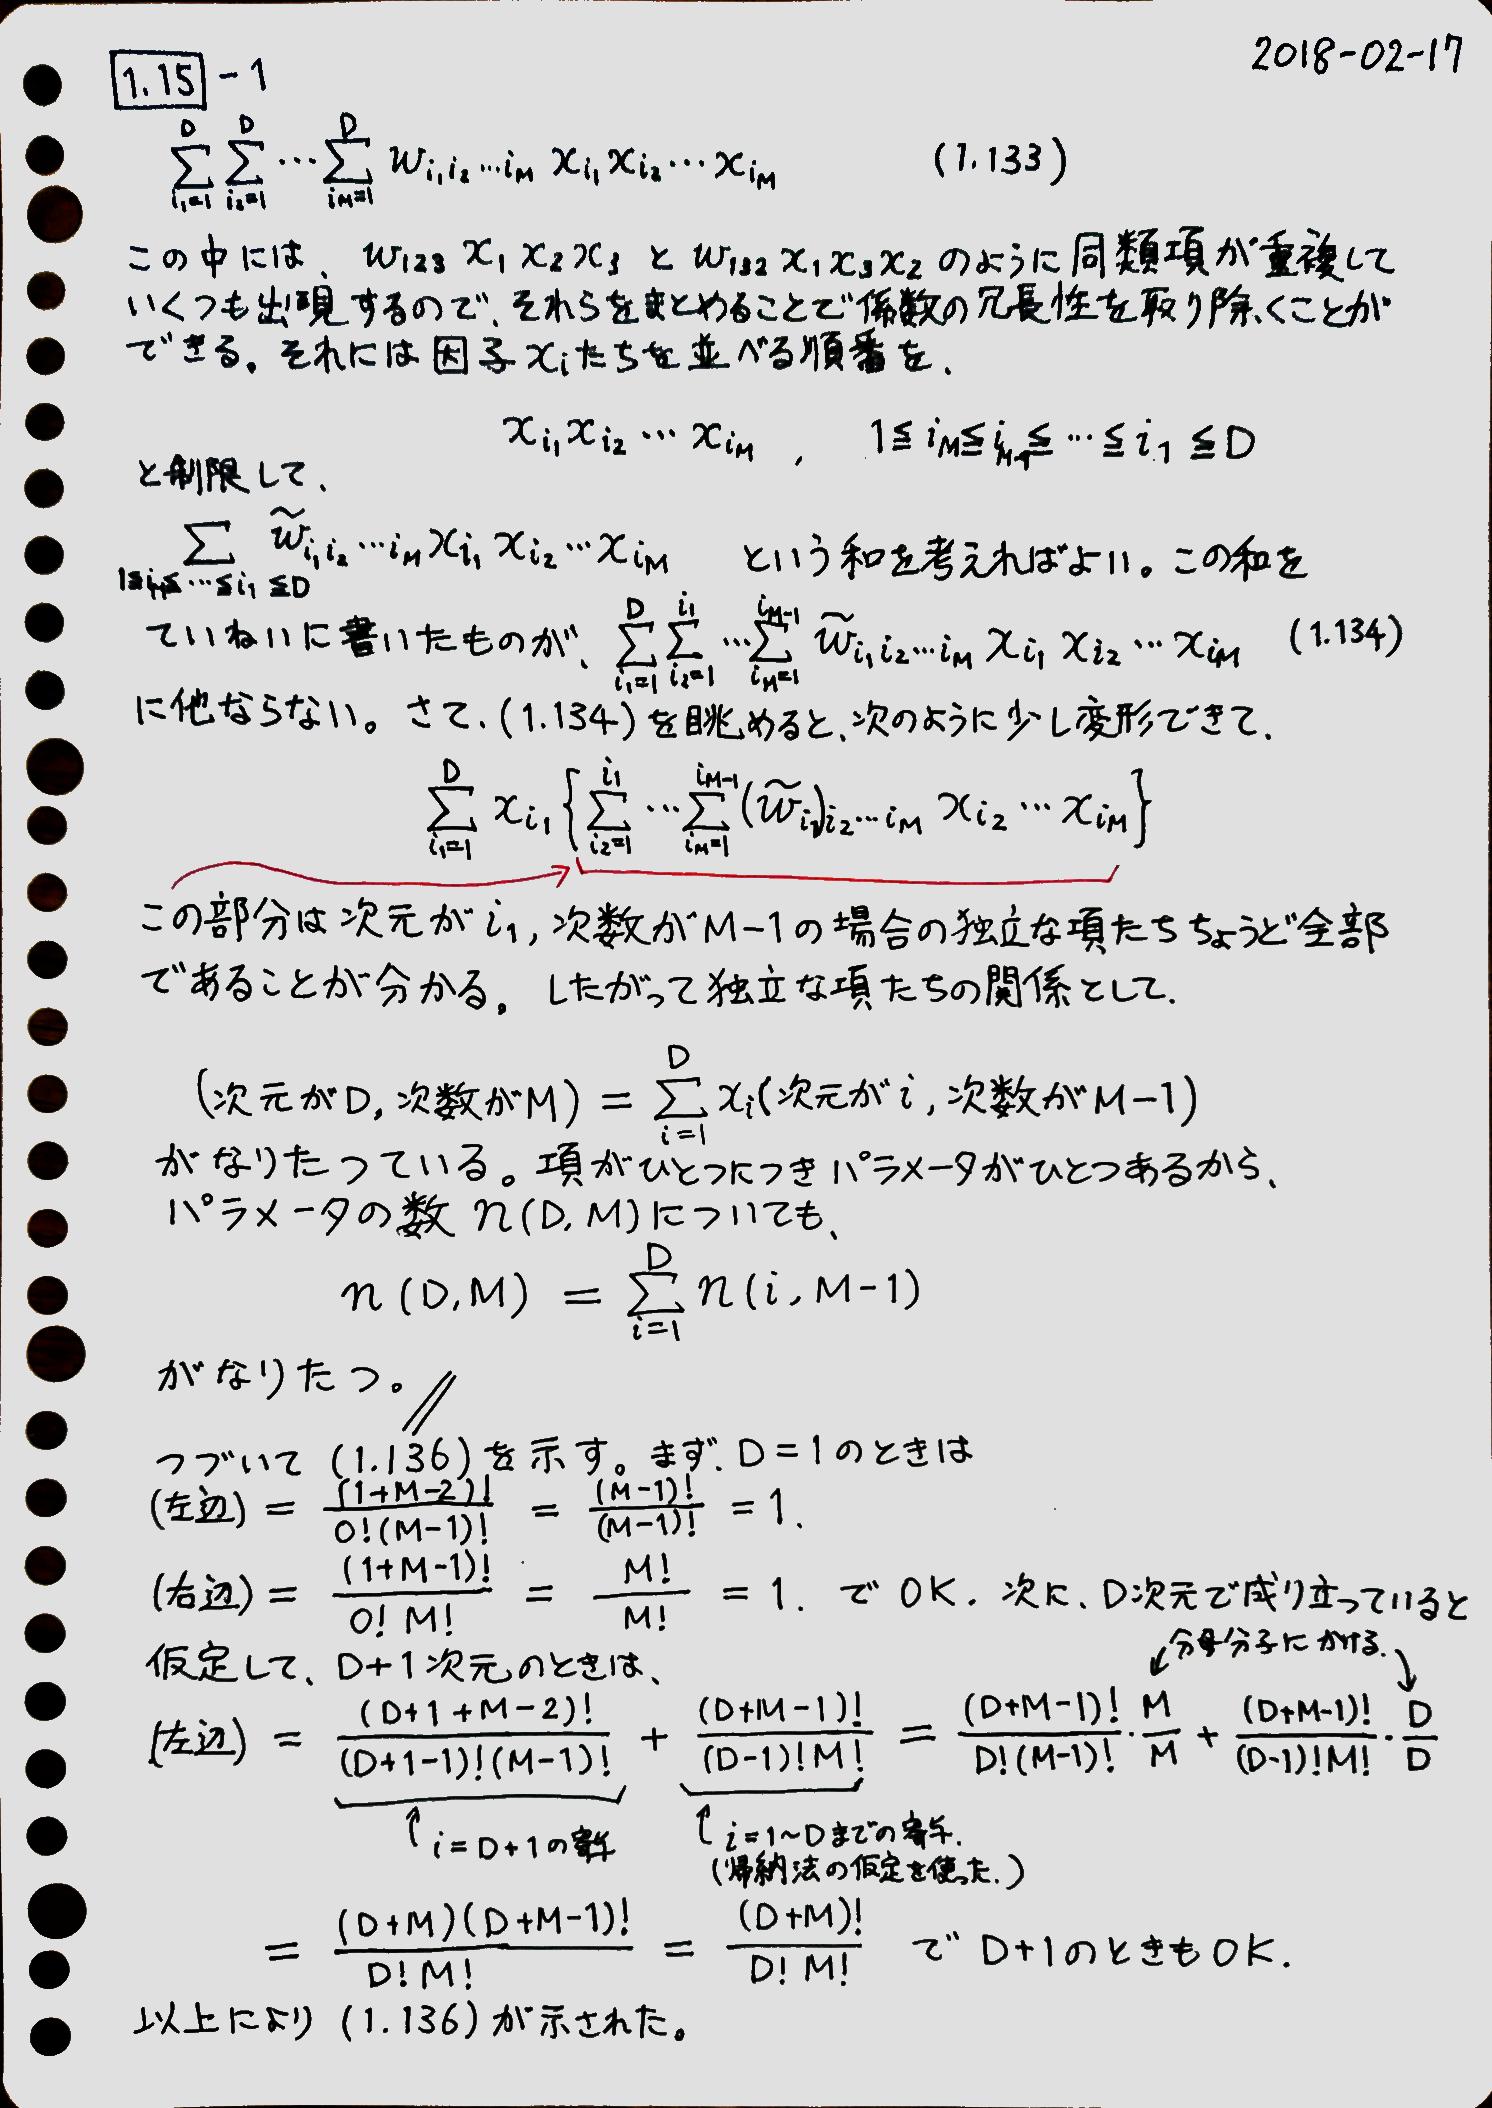 2018-02-17
1.15 -1
$\sum_{i_1=1}^{D} \sum_{i_2=1}^{D} \cdots \sum_{i_M=1}^{D} w_{i_1 i_2 \cdots i_M} x_{i_1} x_{i_2} \cdots x_{i_M}$ (1.133)
この中には、$w_{123} x_1 x_2 x_3$ と $w_{132} x_1 x_3 x_2$ のように同類項が重複して
いくつも出現するので、それらをまとめることで係数の冗長性を取り除くことが
できる。それには因子 $x_i$ たちを並べる順番を、
$x_{i_1} x_{i_2} \cdots x_{i_M}$ , $1 ≦ i_M ≦ i_{M-1} ≦ \cdots ≦ i_1 ≦ D$
と制限して、
$\sum_{1 ≦ i_M ≦ \cdots ≦ i_1 ≦ D} \widetilde{w}_{i_1 i_2 \cdots i_M} x_{i_1} x_{i_2} \cdots x_{i_M}$ という和を考えればよい。この和を
ていねいに書いたものが、$\sum_{i_1=1}^{D} \sum_{i_2=1}^{i_1} \cdots \sum_{i_M=1}^{i_{M-1}} \widetilde{w}_{i_1 i_2 \cdots i_M} x_{i_1} x_{i_2} \cdots x_{i_M}$ (1.134)
に他ならない。さて、(1.134)を眺めると、次のように少し変形できて、
$\sum_{i_1=1}^{D} x_{i_1} \{ \sum_{i_2=1}^{i_1} \cdots \sum_{i_M=1}^{i_{M-1}} (\widetilde{w}_{i_1})_{i_2 \cdots i_M} x_{i_2} \cdots x_{i_M} \}$
この部分は次元が $i_1$, 次数が M-1 の場合の独立な項たちちょうど全部
であることが分かる。したがって独立な項たちの関係として、
(次元がD, 次数がM) = $\sum_{i=1}^{D} x_i$(次元が i, 次数が M-1)
がなりたっている。項がひとつにつきパラメータがひとつあるから、
パラメータの数 n(D, M)についても、
$n(D, M) = \sum_{i=1}^{D} n(i, M-1)$
がなりたつ。//
つづいて (1.136)を示す。まず、D=1のときは
(左辺) = $\frac{(1+M-2)!}{0!(M-1)!} = \frac{(M-1)!}{(M-1)!} = 1.$
(右辺) = $\frac{(1+M-1)!}{0! M!} = \frac{M!}{M!} = 1.$ でOK. 次に、D次元で成り立っていると
仮定して、D+1次元のときは、 分母分子にかける.
(左辺) = $\frac{(D+1+M-2)!}{(D+1-1)!(M-1)!} + \frac{(D+M-1)!}{(D-1)! M!} = \frac{(D+M-1)!}{D!(M-1)!} \cdot \frac{M}{M} + \frac{(D+M-1)!}{(D-1)! M!} \cdot \frac{D}{D}$
i=D+1の寄与 i=1~Dまでの寄与.
(帰納法の仮定を使った.)
$= \frac{(D+M)(D+M-1)!}{D! M!} = \frac{(D+M)!}{D! M!}$ で D+1のときもOK.
以上により (1.136)が示された。